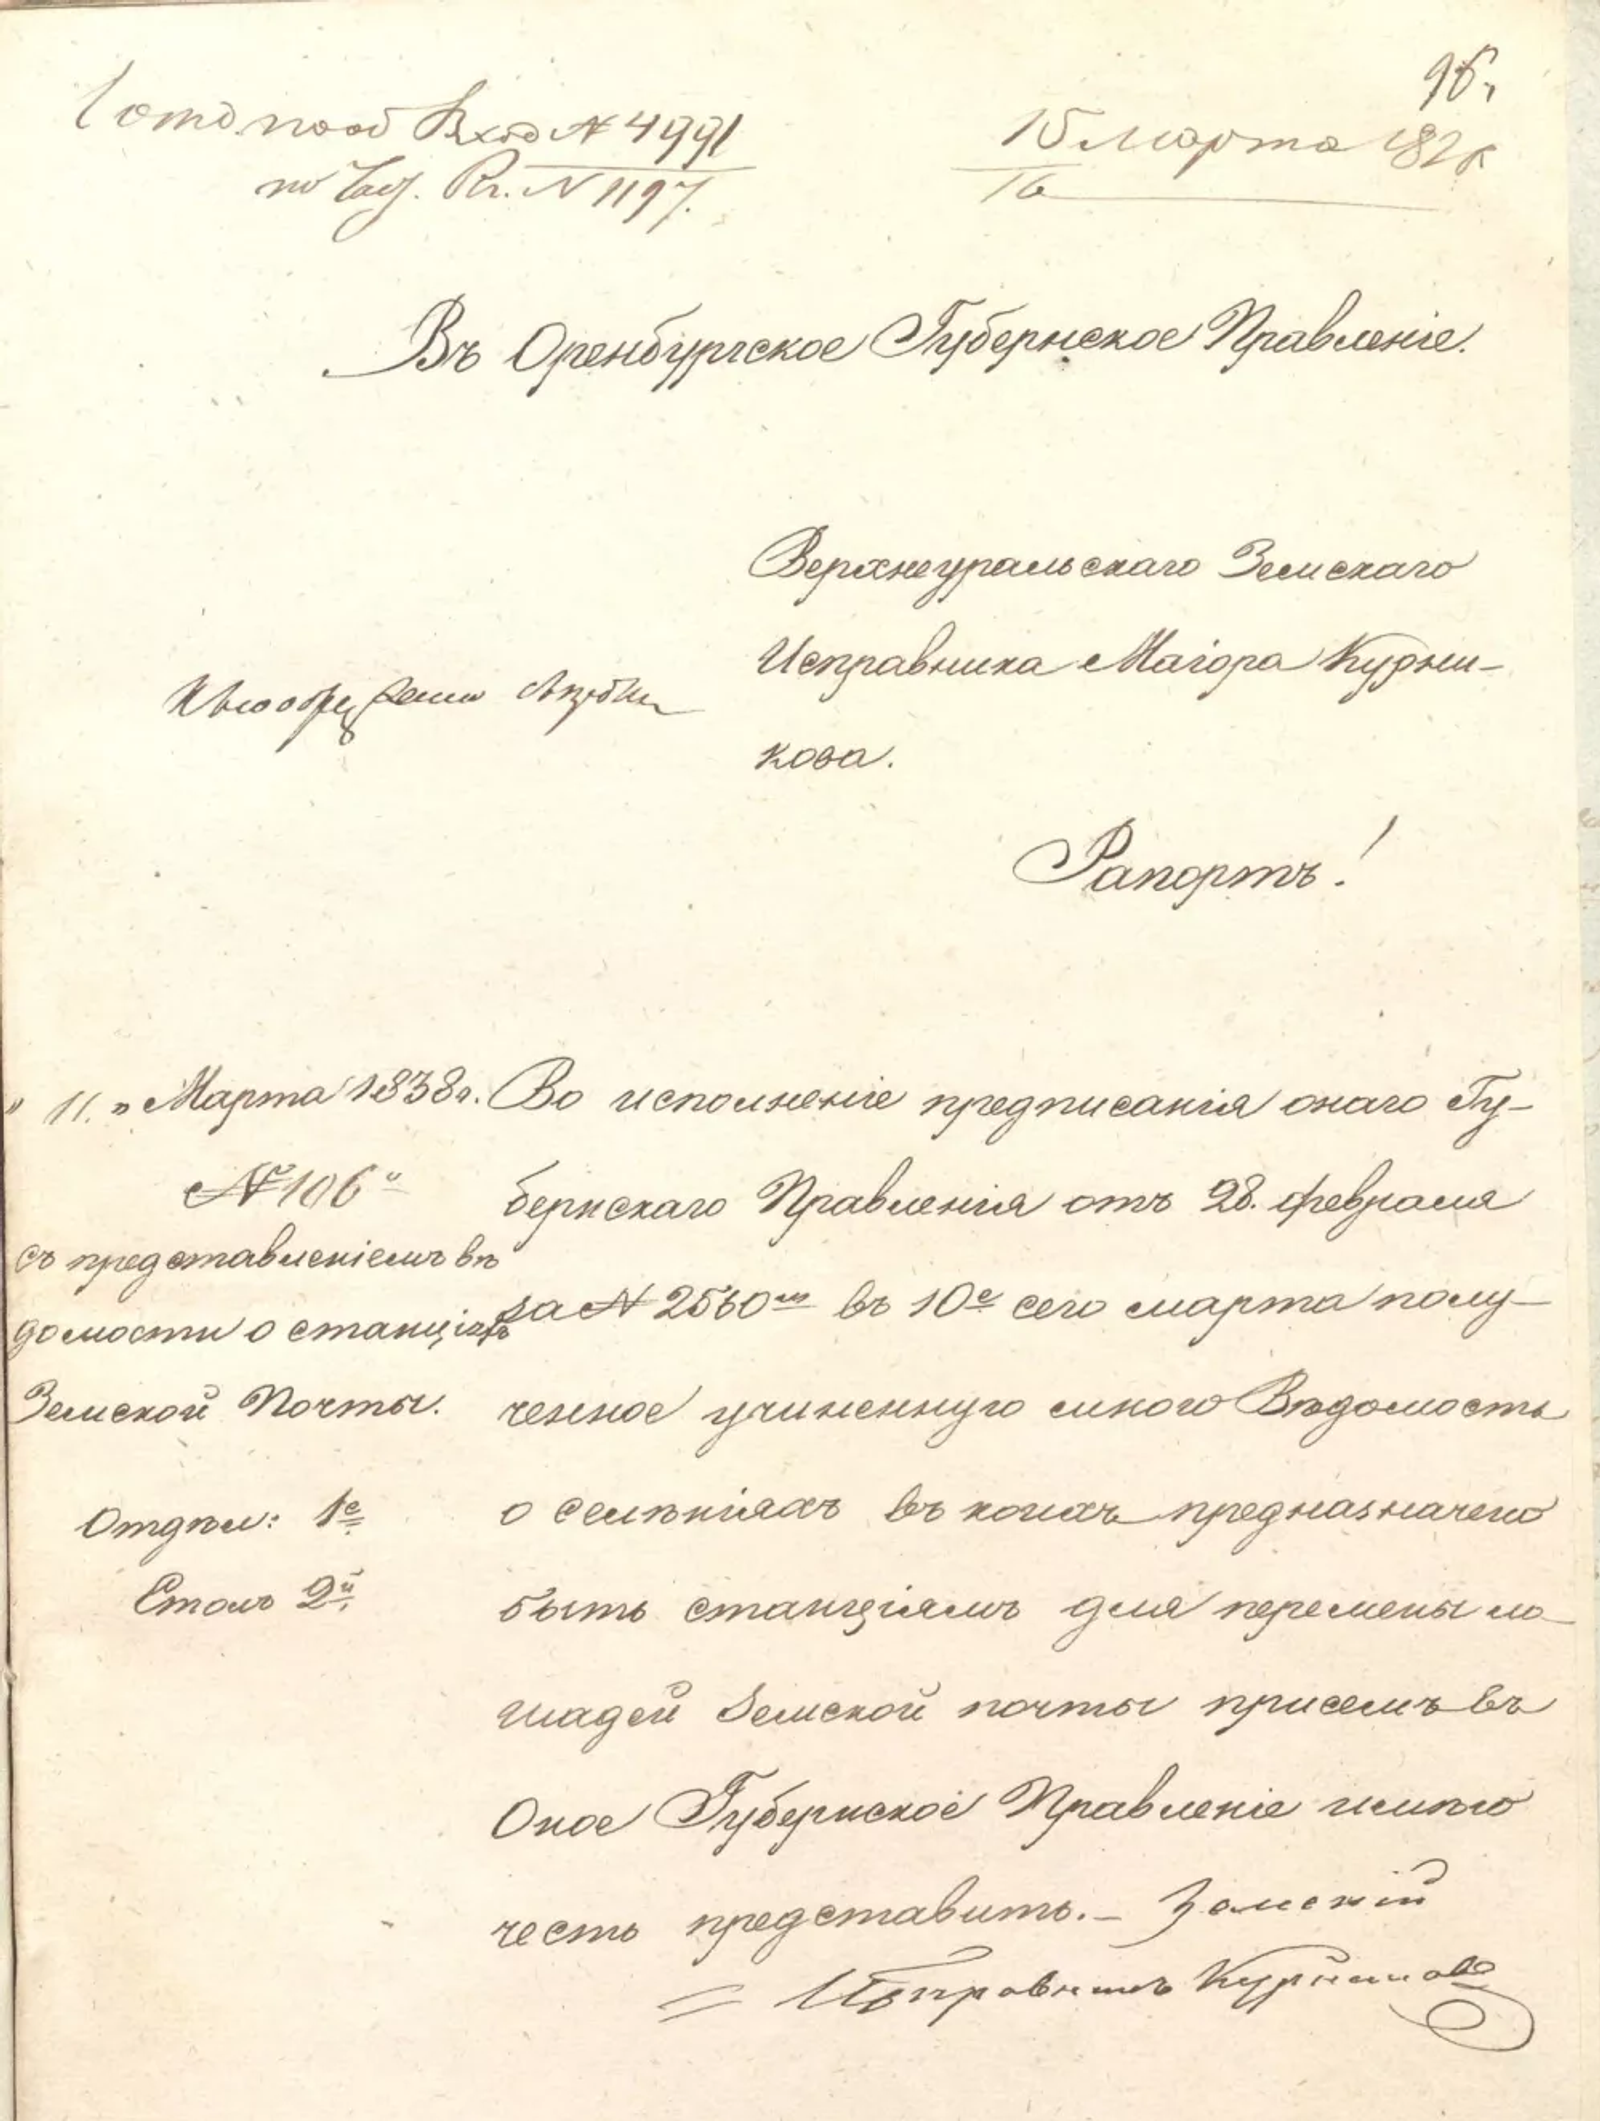 95.
1 отд по об Вход № 4991
15 Марта 1838
по Rr. N 1197.
16
Въ Оренбургское Губернское Правленіе.
Верхнеуральскаго Земскаго
Исправника Маіора Курни-
кова.
Рапортъ!
" 11. " Марта 1838 г.
№ 106 "
съ представленіемъ вѣ
домости о станціяхъ
Земской Почты.
Отдѣл: 1е
Столъ 2й
Во исполненіе предписанія онаго Гу-
бернскаго Правленія отъ 28. февраля
за № 2560мъ въ 10е сего марта полу-
ченное учиненную мною Вѣдомость
о селѣніяхъ въ коихъ предназначено
быть станціямъ для перемены ло-
шадей земской почты присемъ въ
Оное Губернское Правленіе имѣю
честь представить. – Земскій
Исправникъ Курниковъ